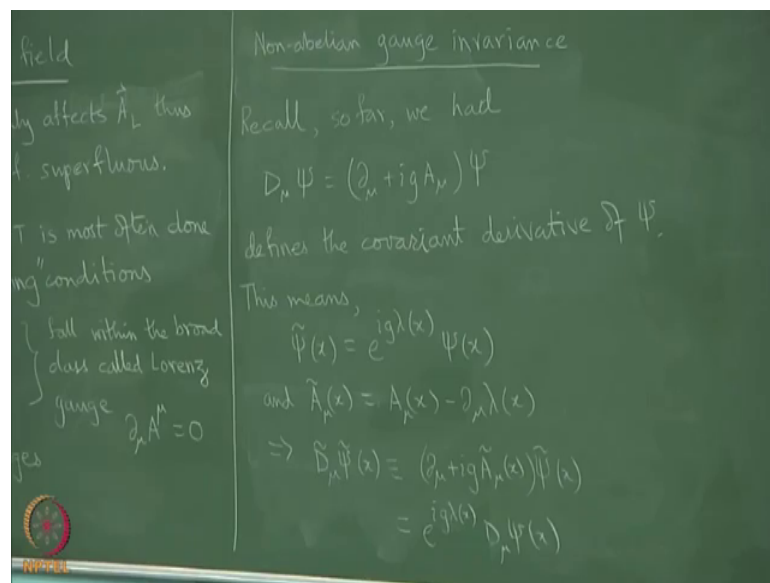 field
affects $\vec{A}_L$ thus
superfluous.
T is most often done
ng" conditions
fall within the broad
class called Lorenz
gauge $\partial_\mu A^\mu = 0$
ges
Non-abelian gauge invariance
Recall, so far, we had
$D_\mu \Psi = (\partial_\mu + i g A_\mu) \Psi$
defines the covariant derivative of $\Psi$.
This means,
$\tilde{\Psi}(x) = e^{i g \lambda(x)} \Psi(x)$
and $\tilde{A}_\mu(x) = A_\mu(x) - \partial_\mu \lambda(x)$
$\Rightarrow \tilde{D}_\mu \tilde{\Psi}(x) \equiv (\partial_\mu + i g \tilde{A}_\mu(x)) \tilde{\Psi}(x)$
$= e^{i g \lambda(x)} D_\mu \Psi(x)$
NPTEL